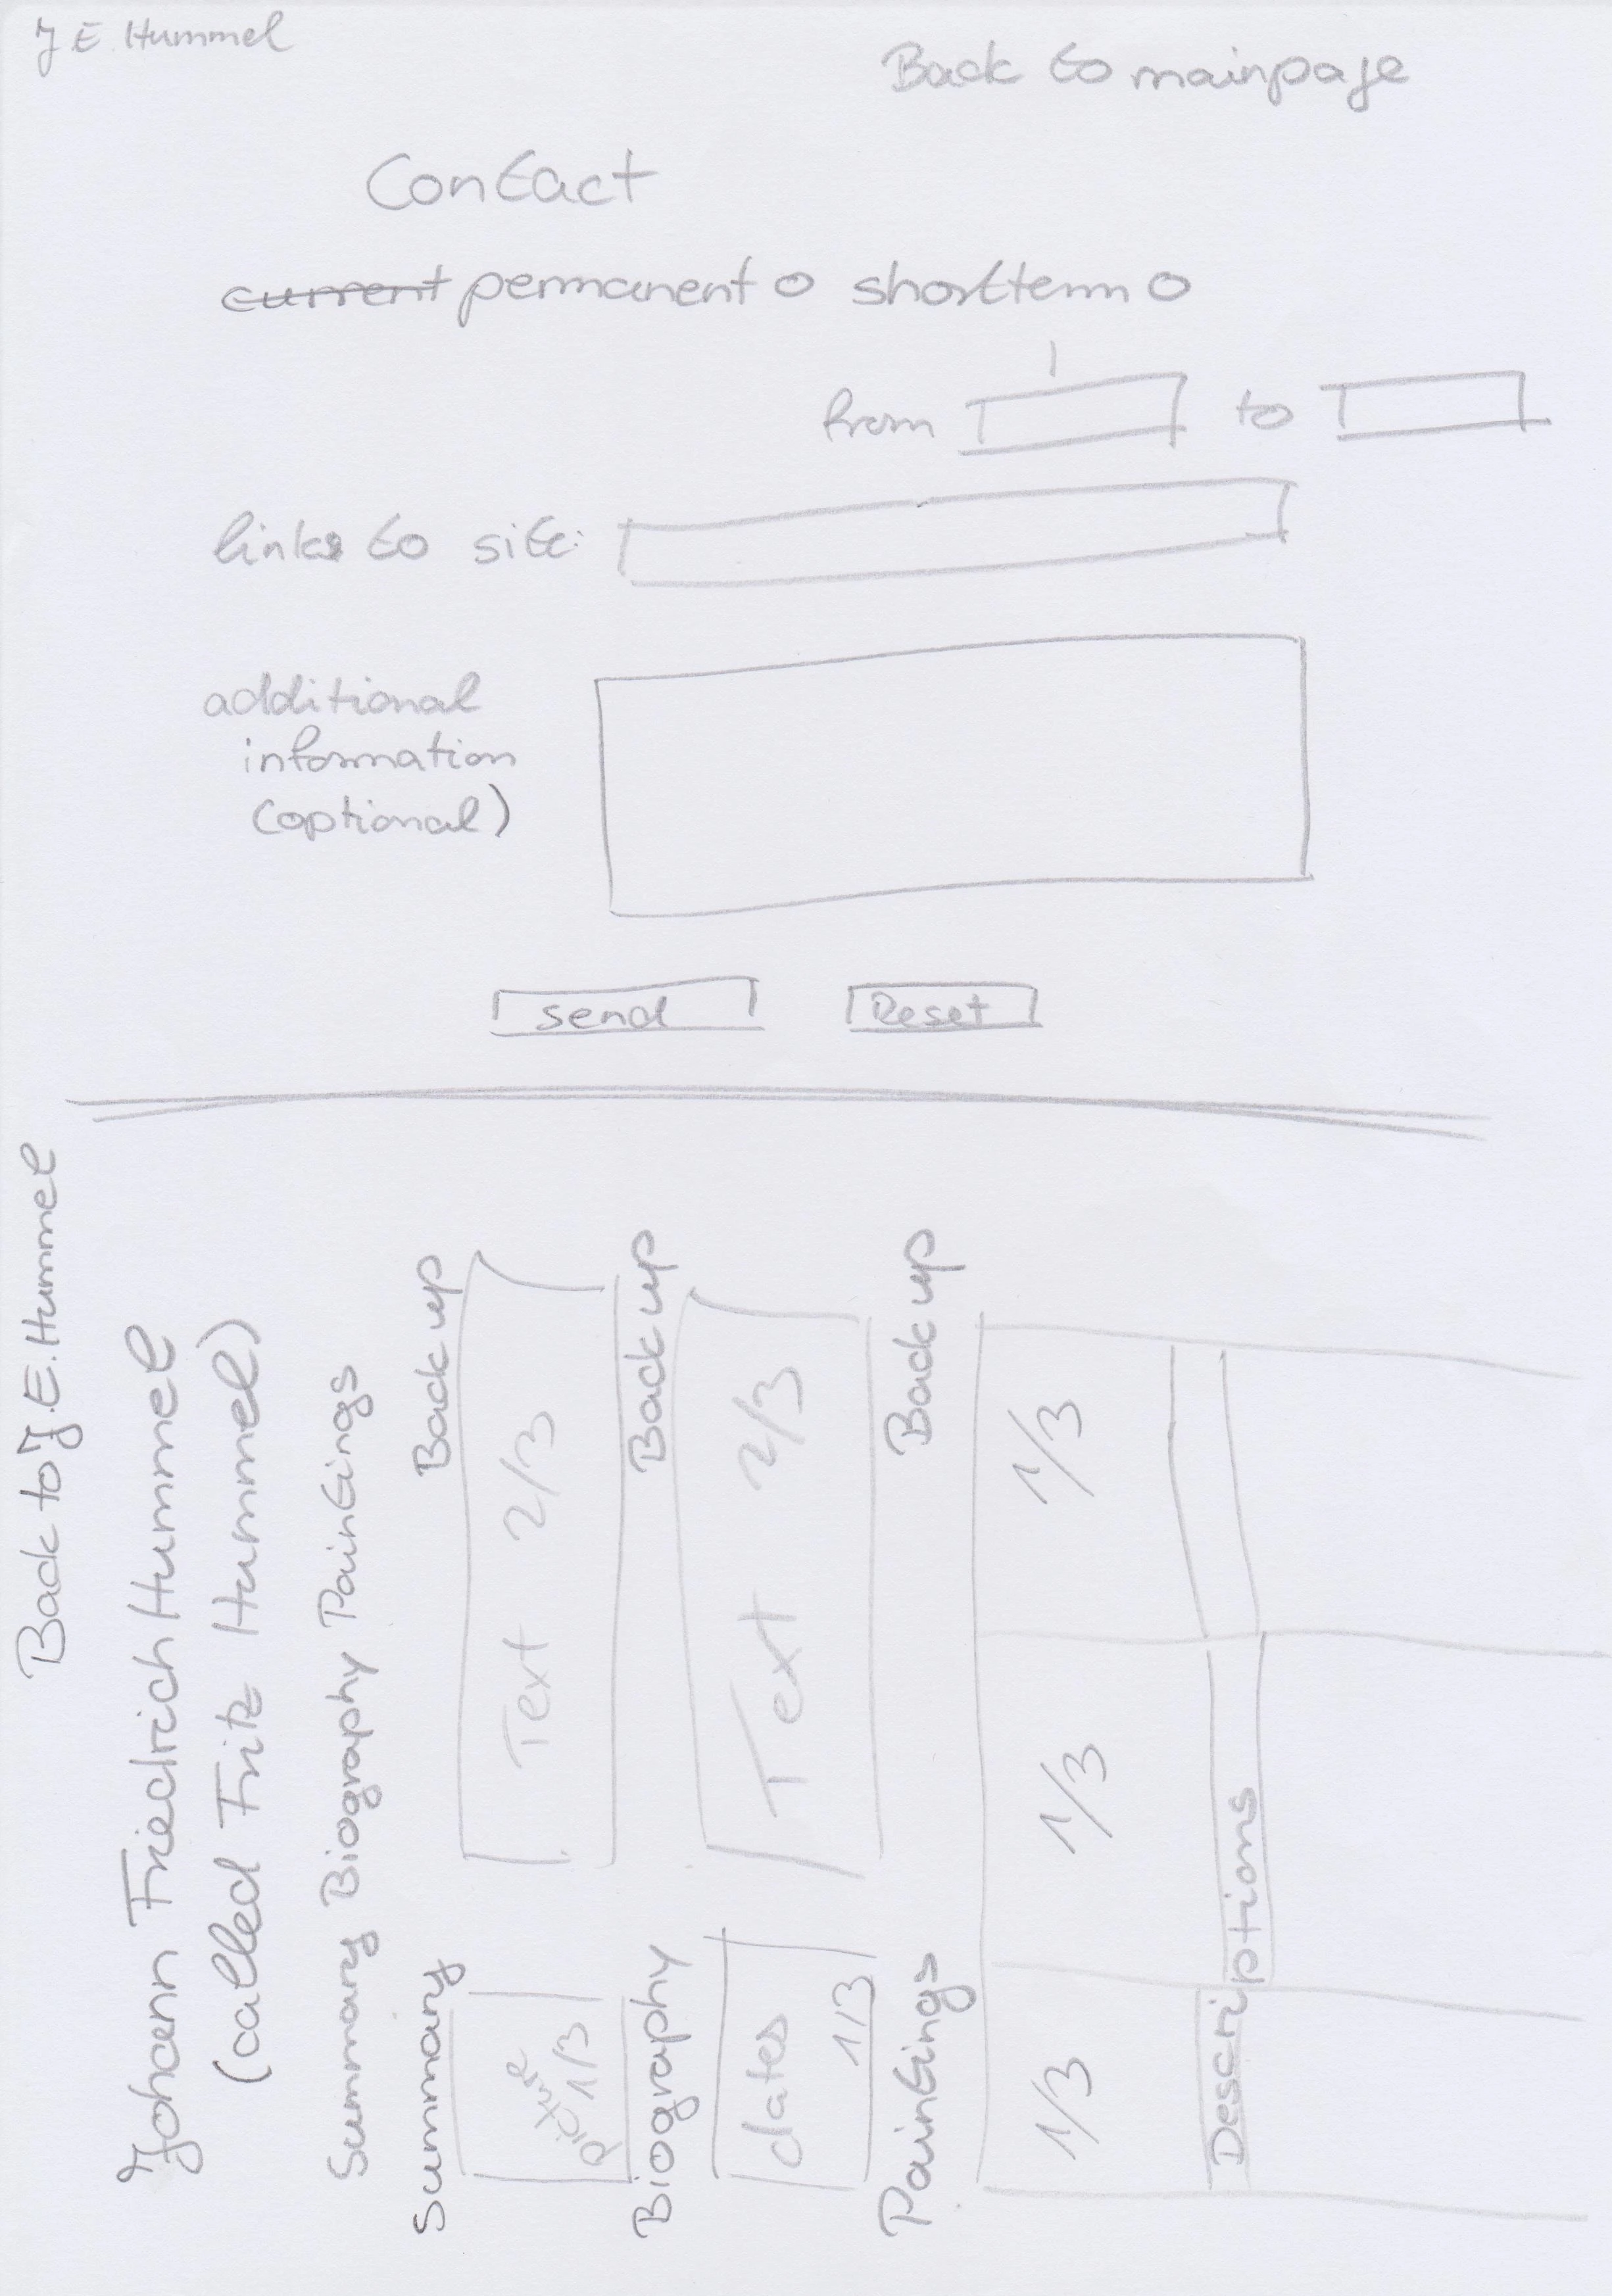 J E. Hummel
Back to mainpage
Contact
current permanent o shortterm o
from to
links to site:
additional
information
(optional)
send Reset
Back to J.E. Hummel
Johann Friedrich Hummel
(called Fritz Hummel)
Summary Biography Paintings
Summary Back up
picture 1/3 Text 2/3
Biography Back up
dates 1/3 Text 2/3
Paintings Back up
1/3 1/3 1/3
Descriptions